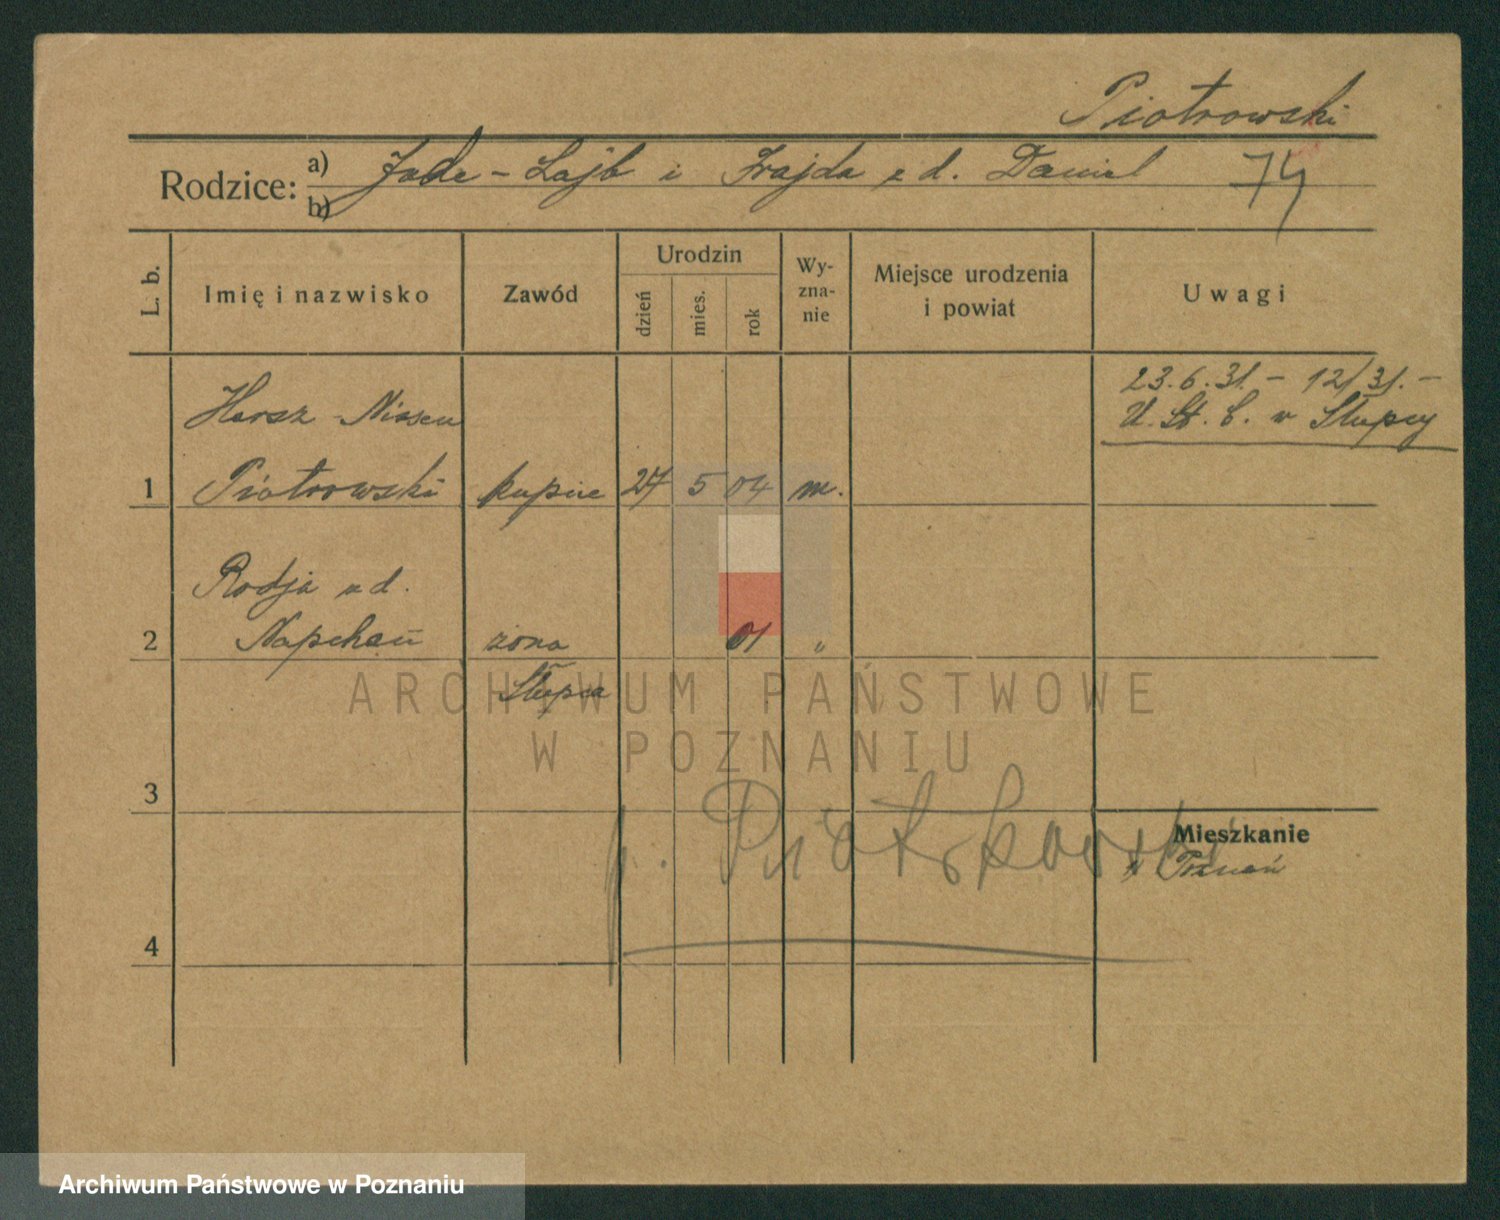 Piotrowski
Rodzice: a) Jude - Lajb i Frajda z d. Daniel 74
b)
L. b. Imię i nazwisko Zawód Urodzin dzień mies. rok Wy-zna-nie Miejsce urodzenia i powiat Uwagi
23.6.31. - 12/31. -
U. St. C. w Słupcy
Hersz - Nissen
1 Piotrowski kupiec 27 5 04 m.
Rodja z d.
2 żona 01 "
Słupca
3
Mieszkanie
Poznań
4
ARCHIWUM PAŃSTWOWE
W POZNANIU
Archiwum Państwowe w Poznaniu